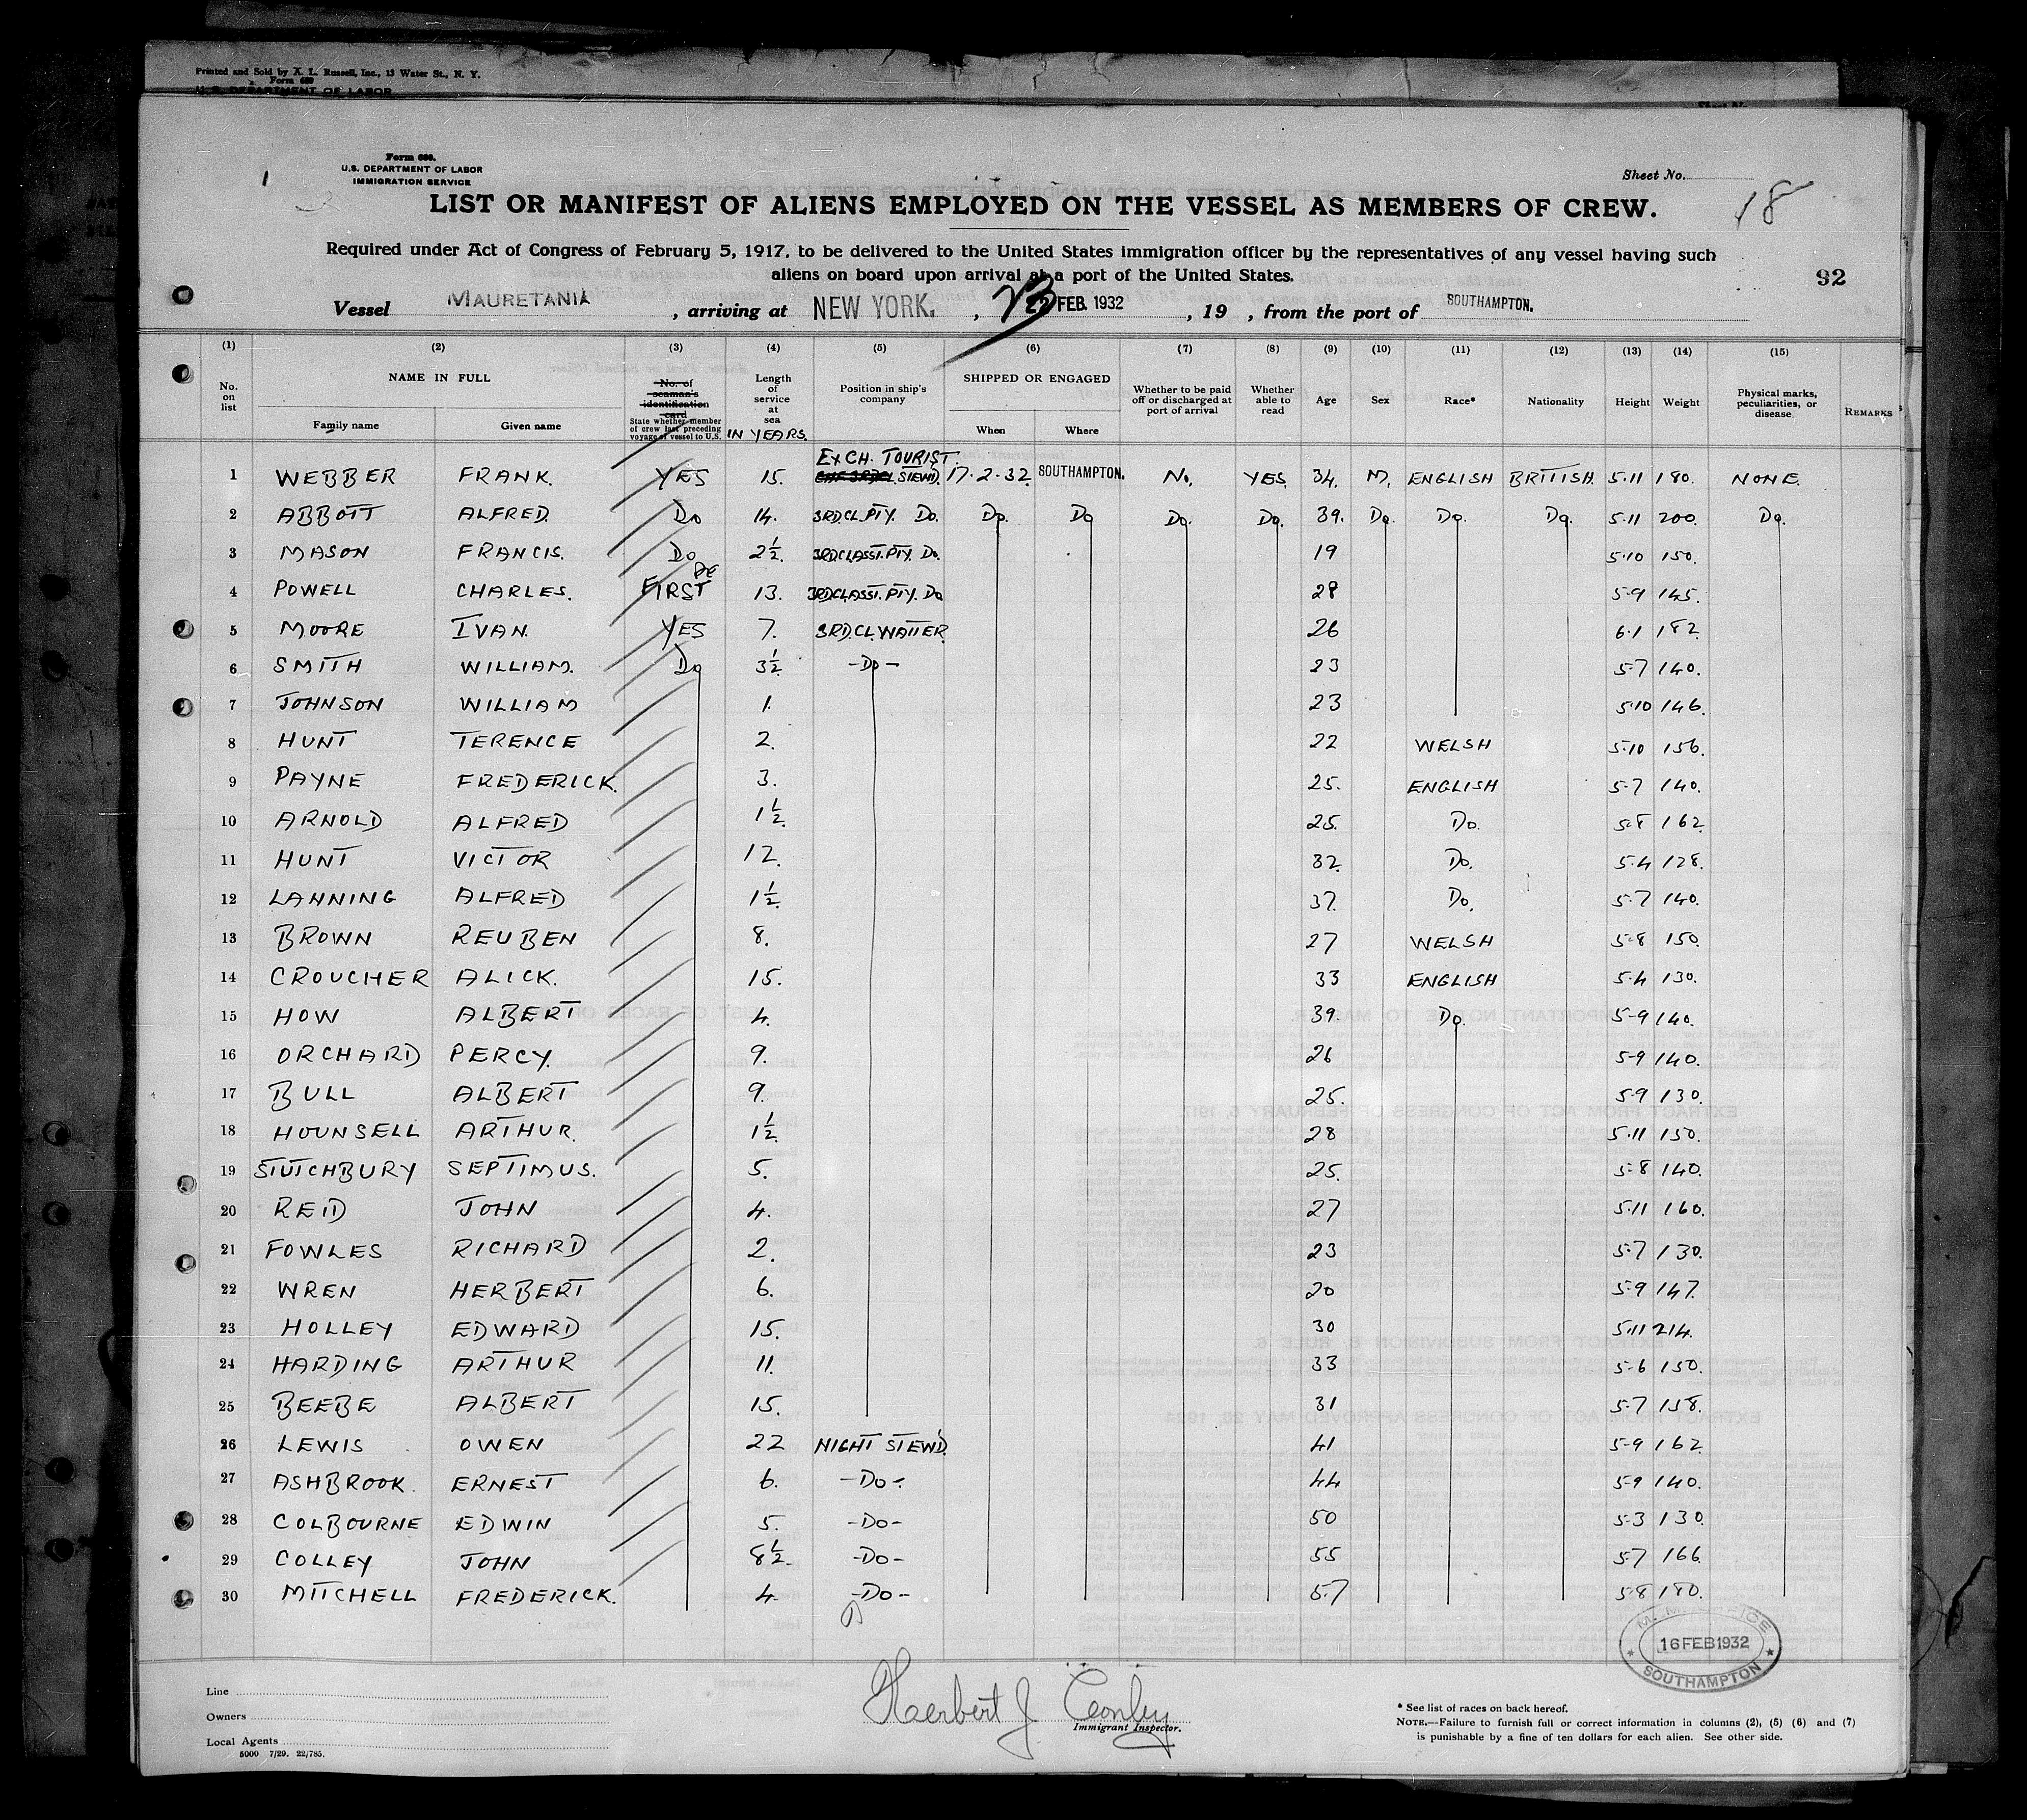 Printed and Sold by X. L. Russell, Inc., 13 Water St., N. Y.
Form 680
U. S. DEPARTMENT OF LABOR
Form 680.
U.S. DEPARTMENT OF LABOR
IMMIGRATION SERVICE
Sheet No.
18
LIST OR MANIFEST OF ALIENS EMPLOYED ON THE VESSEL AS MEMBERS OF CREW.
Required under Act of Congress of February 5, 1917, to be delivered to the United States immigration officer by the representatives of any vessel having such
aliens on board upon arrival at a port of the United States.
92
Vessel MAURETANIA , arriving at NEW YORK. , 23 FEB. 1932 , 19 , from the port of SOUTHAMPTON.
(1) (2) (3) (4) (5) (6) (7) (8) (9) (10) (11) (12) (13) (14) (15)
No. on list NAME IN FULL Family name Given name No. of seaman's identification card State whether member of crew last preceding voyage of vessel to U.S. Length of service at sea IN YEARS. Position in ship's company SHIPPED OR ENGAGED When Where Whether to be paid off or discharged at port of arrival Whether able to read Age Sex Race* Nationality Height Weight Physical marks, peculiarities, or disease. REMARKS
EX CH. TOURIST.
1 WEBBER FRANK. YES 15. STEWD. 17.2-32. SOUTHAMPTON. No. YES. 34. M. ENGLISH BRITISH. 5.11 180. NONE.
2 ABBOTT ALFRED. Do 14. 3RD.CL.PTY. Do. Do. Do Do. Do. 39. Do. Do. Do. 5.11 200. Do.
3 MASON FRANCIS. Do 2½. 3RDCLASST.PTY. Do. 19 5.10 150.
4 POWELL CHARLES. FIRST 13. 3RDCLASST.PTY. Do 28 5.9 145.
5 MOORE IVAN. YES 7. 3RD.CL.WAITER. 26 6.1 182
6 SMITH WILLIAM. Do 3½ -Do- 23 5.7 140.
7 JOHNSON WILLIAM 1. 23 5.10 146.
8 HUNT TERENCE 2. 22 WELSH 5.10 156.
9 PAYNE FREDERICK. 3. 25. ENGLISH 5.7 140.
10 ARNOLD ALFRED 1½. 25. Do. 5.8 162.
11 HUNT VICTOR 12. 32. Do. 5.4 128.
12 LANNING ALFRED 1½. 37. Do. 5.7 140.
13 BROWN REUBEN 8. 27 WELSH 5.8 150.
14 CROUCHER ALICK. 15. 33 ENGLISH 5.4 130.
15 HOW ALBERT 4. 39. Do. 5-9 140.
16 ORCHARD PERCY. 9. 26 5-9 140.
17 BULL ALBERT 9. 25. 5.9 130.
18 HOUNSELL ARTHUR. 1½. 28 5.11 150.
19 STUTCHBURY SEPTIMUS. 5. 25. 5.8 140.
20 REID JOHN 4. 27 5.11 160.
21 FOWLES RICHARD 2. 23 5.7 130.
22 WREN HERBERT 6. 20 5.9 147.
23 HOLLEY EDWARD 15. 30 5.11 214.
24 HARDING ARTHUR 11. 33 5-6 150.
25 BEEBE ALBERT 15. 31 5.7 158.
26 LEWIS OWEN 22 NIGHT STEWD. 41 5-9 162.
27 ASHBROOK. ERNEST 6. -Do- 44 5.9 140.
28 COLBOURNE EDWIN 5. -Do- 50 5-3 130.
29 COLLEY JOHN 8½. -Do- 55 5.7 166.
30 MITCHELL FREDERICK. 4. -Do- 57 5.8 180.
16 FEB 1932
SOUTHAMPTON
Line
Owners
Local Agents
5000 7/29. 22/785.
Herbert J. Conley
Immigrant Inspector.
* See list of races on back hereof.
NOTE.—Failure to furnish full or correct information in columns (2), (5) (6) and (7)
is punishable by a fine of ten dollars for each alien. See other side.